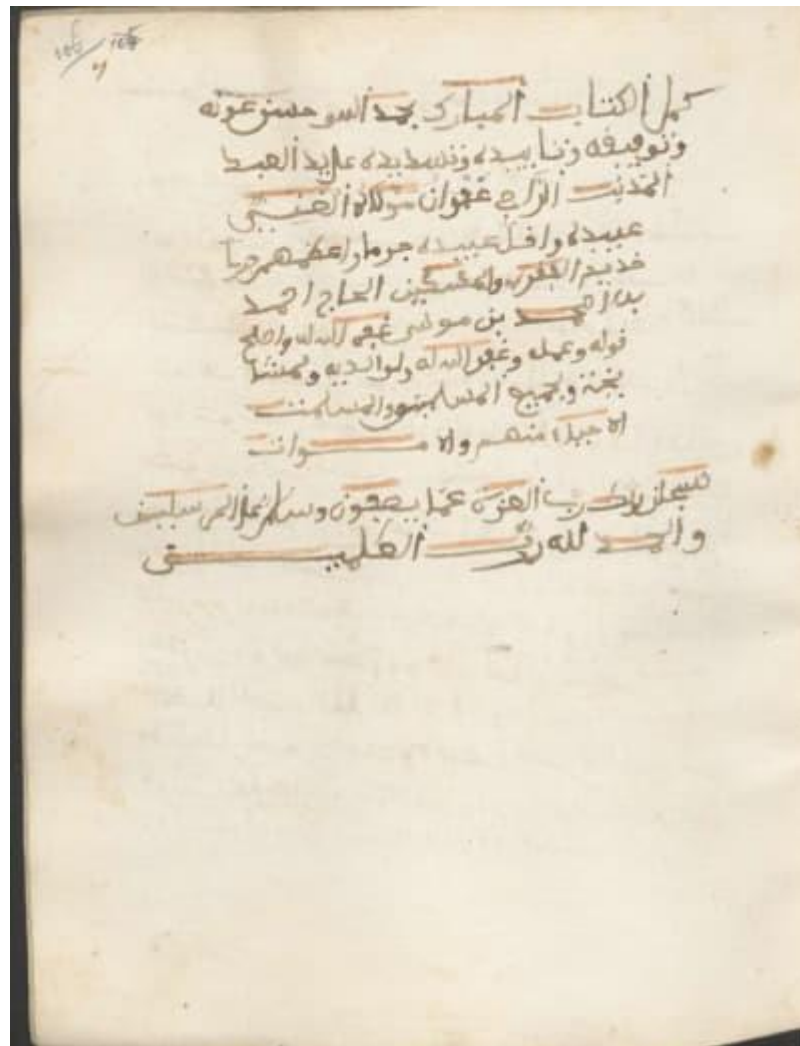 كمل الكتاب المبارك بحمد الله وحسن عونه
وتوفيقه وتاييده وتسديده على يد العبد
المذنب الراجي غفران مولاه الغني
عبيده وافل عبيده جرما واعظمهم
خديم الفقراء والمسكين الحاج احمد
بن احمد بن موسى غفر الله له واصلح
قوله وعمله وغفر الله له ولوالديه
ولجميع المسلمين والمسلمت
الاحياء منهم والاموات
سبحان ربك رب العزة عما يصفون وسلم على المرسلين
والحمد لله رب العلمين